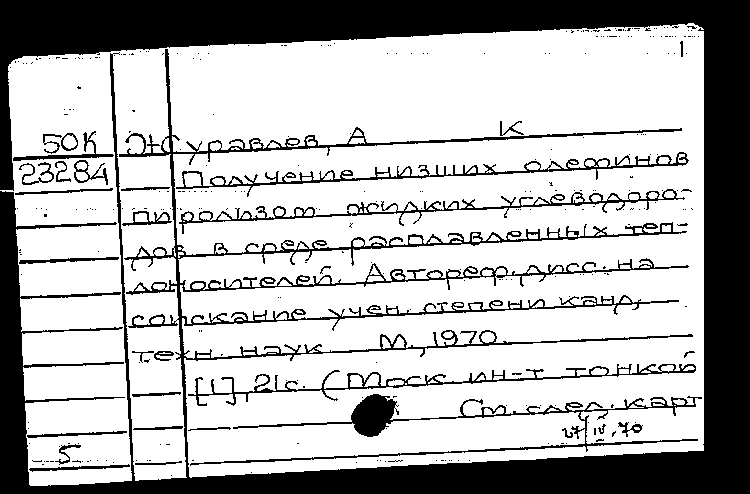 1
50К Журавлев, А К
23284 Получение низших олефинов
пиролизом жидких углеводоро-
дов в среде расплавленных теп-
лоносителей. Автореф. дисс. на
соискание учен. степени канд.
техн. наук М., 1970.
[1], 21с. (Моск. ин-т тонкой
См. след. карт
27/IV.70
5